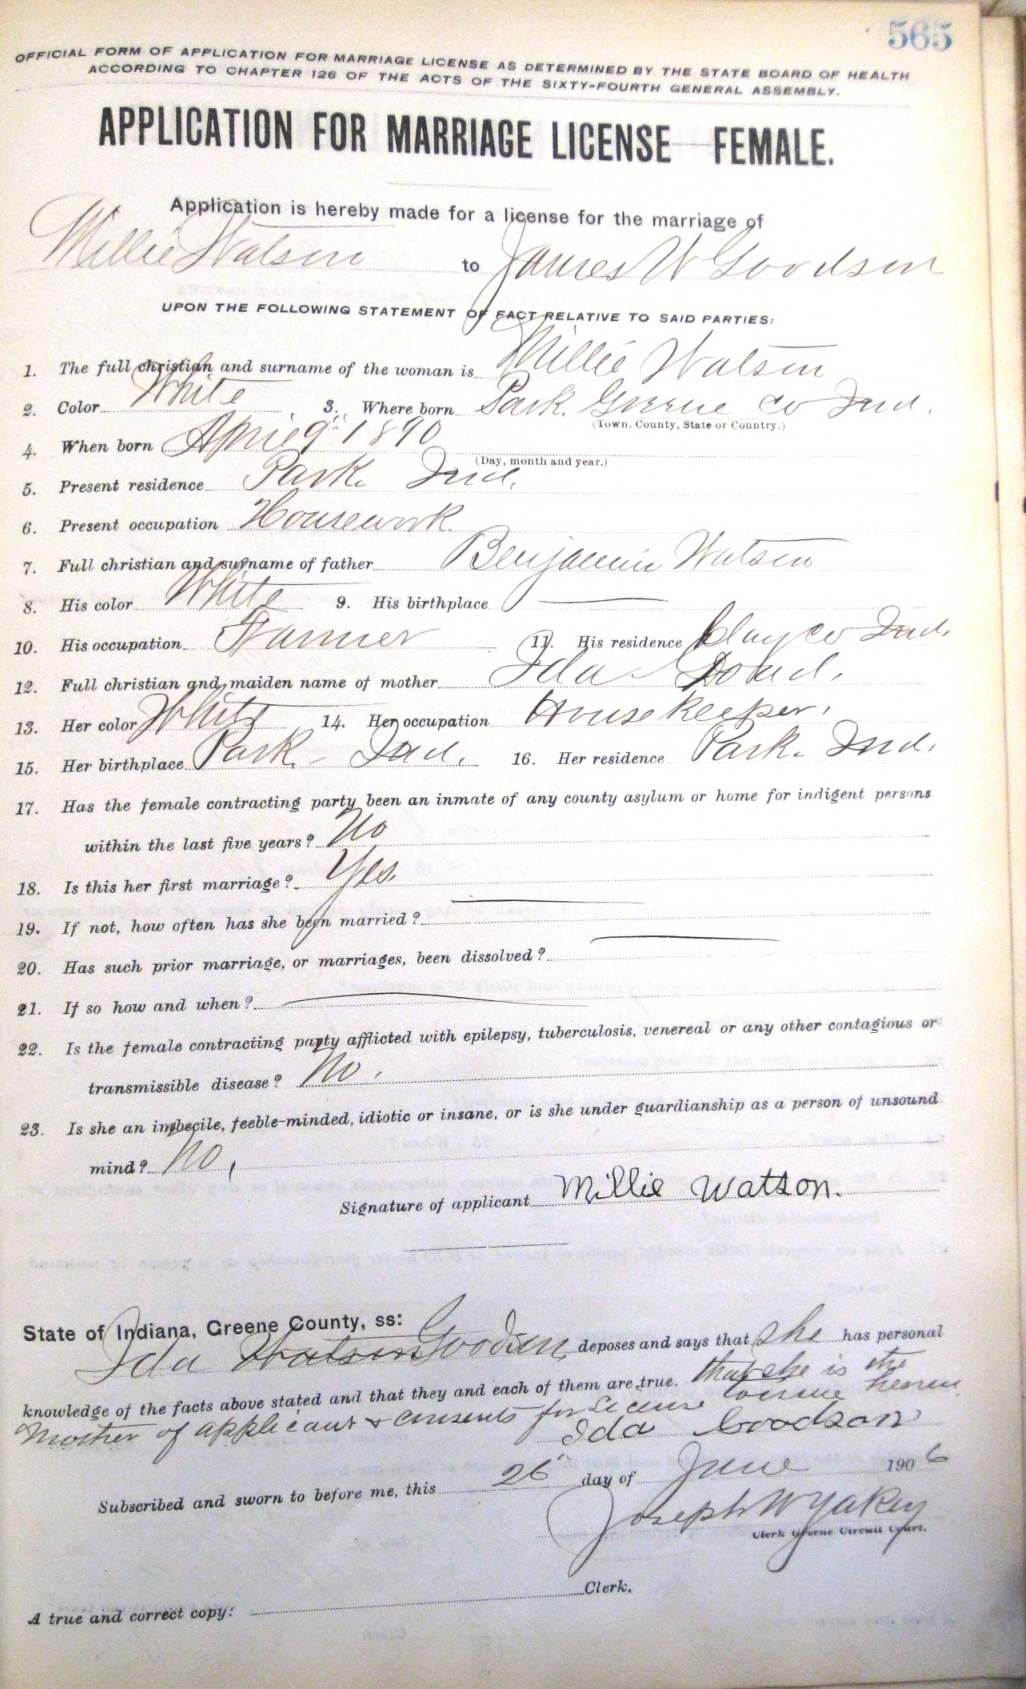 565
OFFICIAL FORM OF APPLICATION FOR MARRIAGE LICENSE AS DETERMINED BY THE STATE BOARD OF HEALTH
ACCORDING TO CHAPTER 126 OF THE ACTS OF THE SIXTY-FOURTH GENERAL ASSEMBLY.
APPLICATION FOR MARRIAGE LICENSE FEMALE.
Application is hereby made for a license for the marriage of
Millie Watson to James W Goodson
UPON THE FOLLOWING STATEMENT OF FACT RELATIVE TO SAID PARTIES:
1. The full christian and surname of the woman is Millie Watson
2. Color White 3. Where born Park. Greene Co Ind.
(Town, County, State or Country.)
4. When born April 9" 1890
(Day, month and year.)
5. Present residence Park Ind.
6. Present occupation Housework
7. Full christian and surname of father Benjamin Watson
8. His color White 9. His birthplace
10. His occupation Farmer 11. His residence Clay co Ind.
12. Full christian and maiden name of mother Ida
13. Her color White 14. Her occupation Housekeeper.
15. Her birthplace Park - Ind. 16. Her residence Park. Ind.
17. Has the female contracting party been an inmate of any county asylum or home for indigent persons
within the last five years? No
18. Is this her first marriage? Yes.
19. If not, how often has she been married?
20. Has such prior marriage, or marriages, been dissolved?
21. If so how and when?
22. Is the female contracting party afflicted with epilepsy, tuberculosis, venereal or any other contagious or
transmissible disease? No.
23. Is she an imbecile, feeble-minded, idiotic or insane, or is she under guardianship as a person of unsound
mind? No,
Signature of applicant Millie Watson.
State of Indiana, Greene County, ss:
Ida Watson Goodson deposes and says that she has personal
knowledge of the facts above stated and that they and each of them are true. that she is the
Mother of applicant & consents for License to issue herein
Ida Goodson
Subscribed and sworn to before me, this 26" day of June 1906
Joseph W Yakey
Clerk Greene Circuit Court.
Clerk.
A true and correct copy: